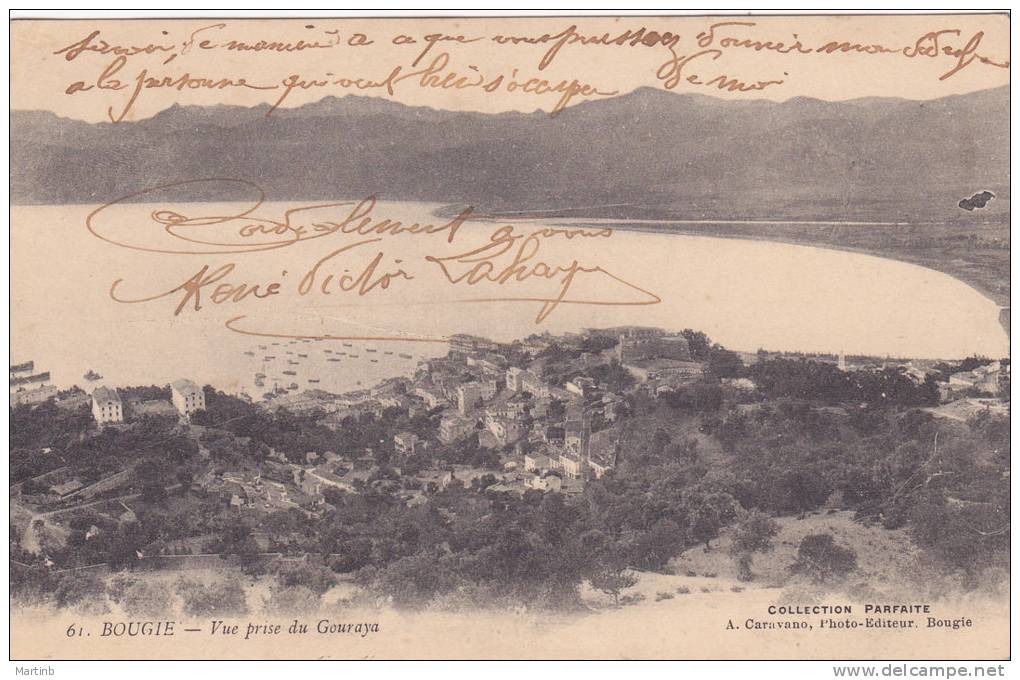 savoir de manière a ce que vous puissiez donner mon adresse
a la personne qui veut bien s'occuper de moi
Cordialement a vous
René Victor Lahaye
61. BOUGIE — Vue prise du Gouraya
COLLECTION PARFAITE
A. Caravano, Photo-Editeur. Bougie
Martinb
www.delcampe.net